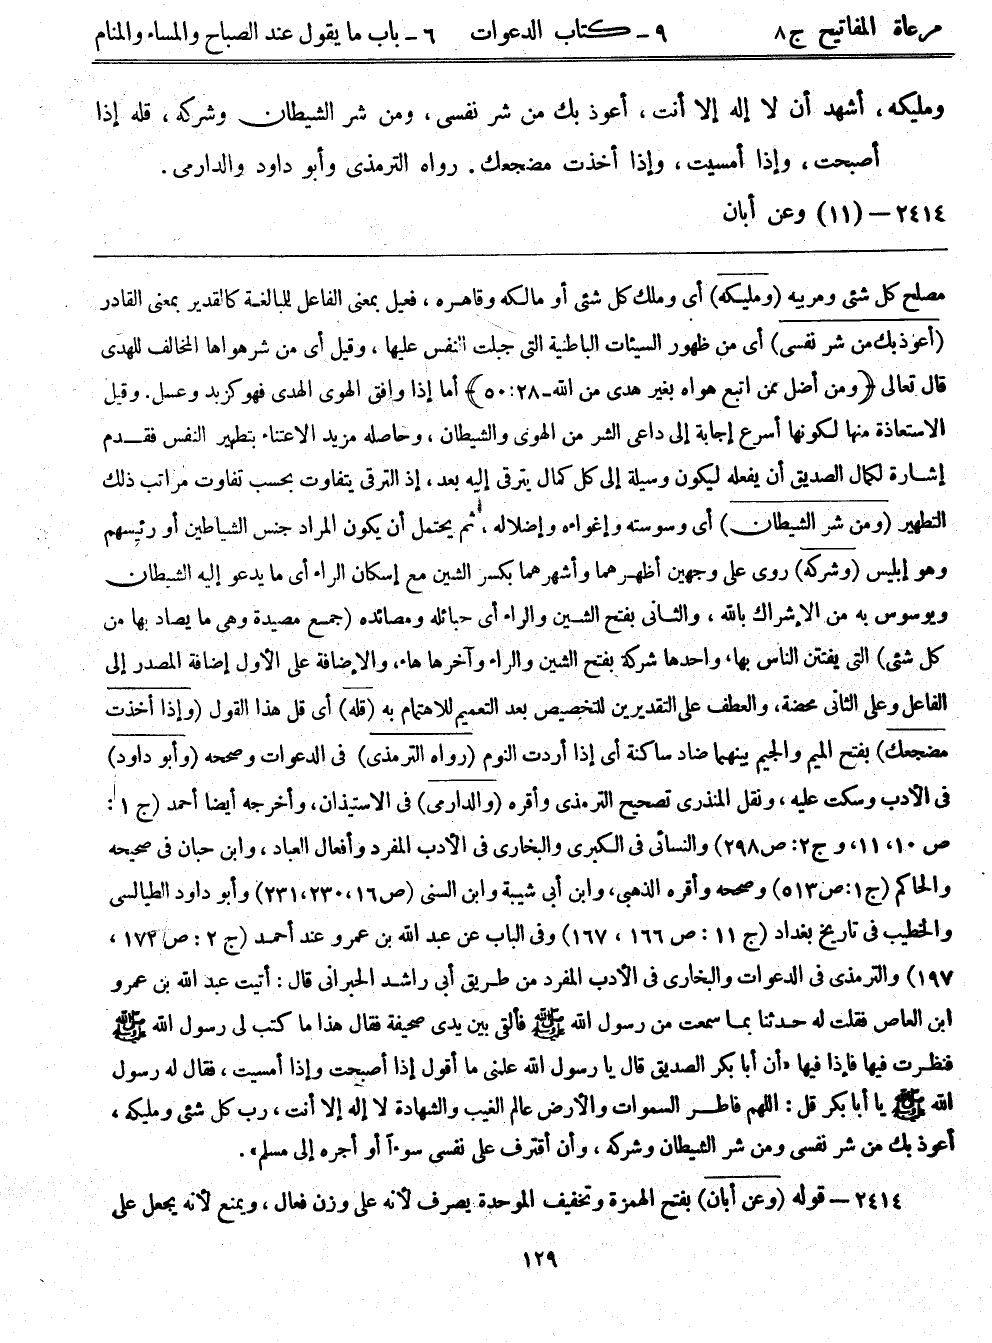 مرعاة المفاتيح ج٨ ٩ ـ كتاب الدعوات ٦ ـ باب ما يقول عند الصباح والمساء والمنام
ومليكه، أشهد أن لا إله إلا أنت، أعوذ بك من شر نفسى، ومن شر الشيطان وشركه، قله إذا
أصبحت، وإذا أمسيت، وإذا أخذت مضجعك. رواه الترمذى وأبو داود والدارمى.
٢٤١٤ — (١١) وعن أبان
مصلح كل شئى ومربيه (ومليكه) أى وملك كل شئى أو مالكه وقاهره، فعيل بمعنى الفاعل للبالغة كالقدير بمعنى القادر
(أعوذ بك من شر نفسى) أى من ظهور السيئات الباطنية التى جبلت النفس عليها، وقيل أى من شر هواها المخالف للهدى
قال تعالى ﴿ومن أضل ممن اتبع هواه بغير هدى من الله ـ ٢٨: ٥٠﴾ أما إذا وافق الهوى الهدى فهو كزبد وعسل. وقيل
الاستعاذة منها لكونها أسرع إجابة إلى داعى الشر من الهوى والشيطان، وحاصله مزيد الاعتناء بتطهير النفس فقدم
إشارة لكمال الصديق أن يفعله ليكون وسيلة إلى كل كمال يترقى إليه بعد، إذ الترقى يتفاوت بحسب تفاوت مراتب ذلك
التطهير (ومن شر الشيطان) أى وسوسته وإغواءه وإضلاله، ثم يحتمل أن يكون المراد جنس الشياطين أو رئيسهم
وهو إبليس (وشركه) روى على وجهين أظهرهما وأشهرهما بكسر الشين مع إسكان الراء أى ما يدعو إليه الشيطان
ويوسوس به من الإشراك بالله، والثانى بفتح الشين والراء أى حبائله ومصائده (جمع مصيدة وهى ما يصاد بها من
كل شئى) التى يفتتن الناس بها، واحدها شركة بفتح الشين والراء وآخرها هاء، والإضافة على الأول إضافة المصدر إلى
الفاعل وعلى الثانى محضة، والعطف على التقديرين للتخصيص بعد التعميم للاهتمام به (قله) أى قل هذا القول (وإذا أخذت
مضجعك) بفتح الميم والجيم بينهما ضاد ساكنة أى إذا أردت النوم (رواه الترمذى) فى الدعوات وصححه (وأبو داود)
فى الأدب وسكت عليه، ونقل المنذرى تصحيح الترمذى وأقره (والدارمى) فى الاستيذان، وأخرجه أيضا أحمد (ج ١:
ص ١٠، ١١، و ج٢: ص٢٩٨) والنسائى فى الكبرى والبخارى فى الأدب المفرد وأفعال العباد، وابن حبان فى صحيحه
والحاكم (ج١: ص٥١٣) وصححه وأقره الذهبى، وابن أبى شيبة وابن السنى (ص١٦، ٢٣٠، ٢٣١) وأبو داود الطيالسى
والخطيب فى تاريخ بغداد (ج ١١: ص ١٦٦، ١٦٧) وفى الباب عن عبد الله بن عمرو عند أحمد (ج ٢: ص ١٧٢،
١٩٧) والترمذى فى الدعوات والبخارى فى الأدب المفرد من طريق أبى راشد الحبرانى قال: أتيت عبد الله بن عمرو
ابن العاص فقلت له حدثنا بما سمعت من رسول الله ﷺ فألقى بين يدى صحيفة فقال هذا ما كتب لى رسول الله ﷺ
فنظرت فيها فإذا فيها «أن أبا بكر الصديق قال يا رسول الله علمنى ما أقول إذا أصبحت وإذا أمسيت، فقال له رسول
الله ﷺ يا أبا بكر قل: اللهم فاطر السموات والأرض عالم الغيب والشهادة لا إله إلا أنت، رب كل شئى ومليكه،
أعوذ بك من شر نفسى ومن شر الشيطان وشركه، وأن أقترف على نفسى سوءاً أو أجره إلى مسلم».
٢٤١٤ — قوله (وعن أبان) بفتح الهمزة وتخفيف الموحدة يصرف لأنه على وزن فعال، ويمنع لأنه يجعل على
١٢٩